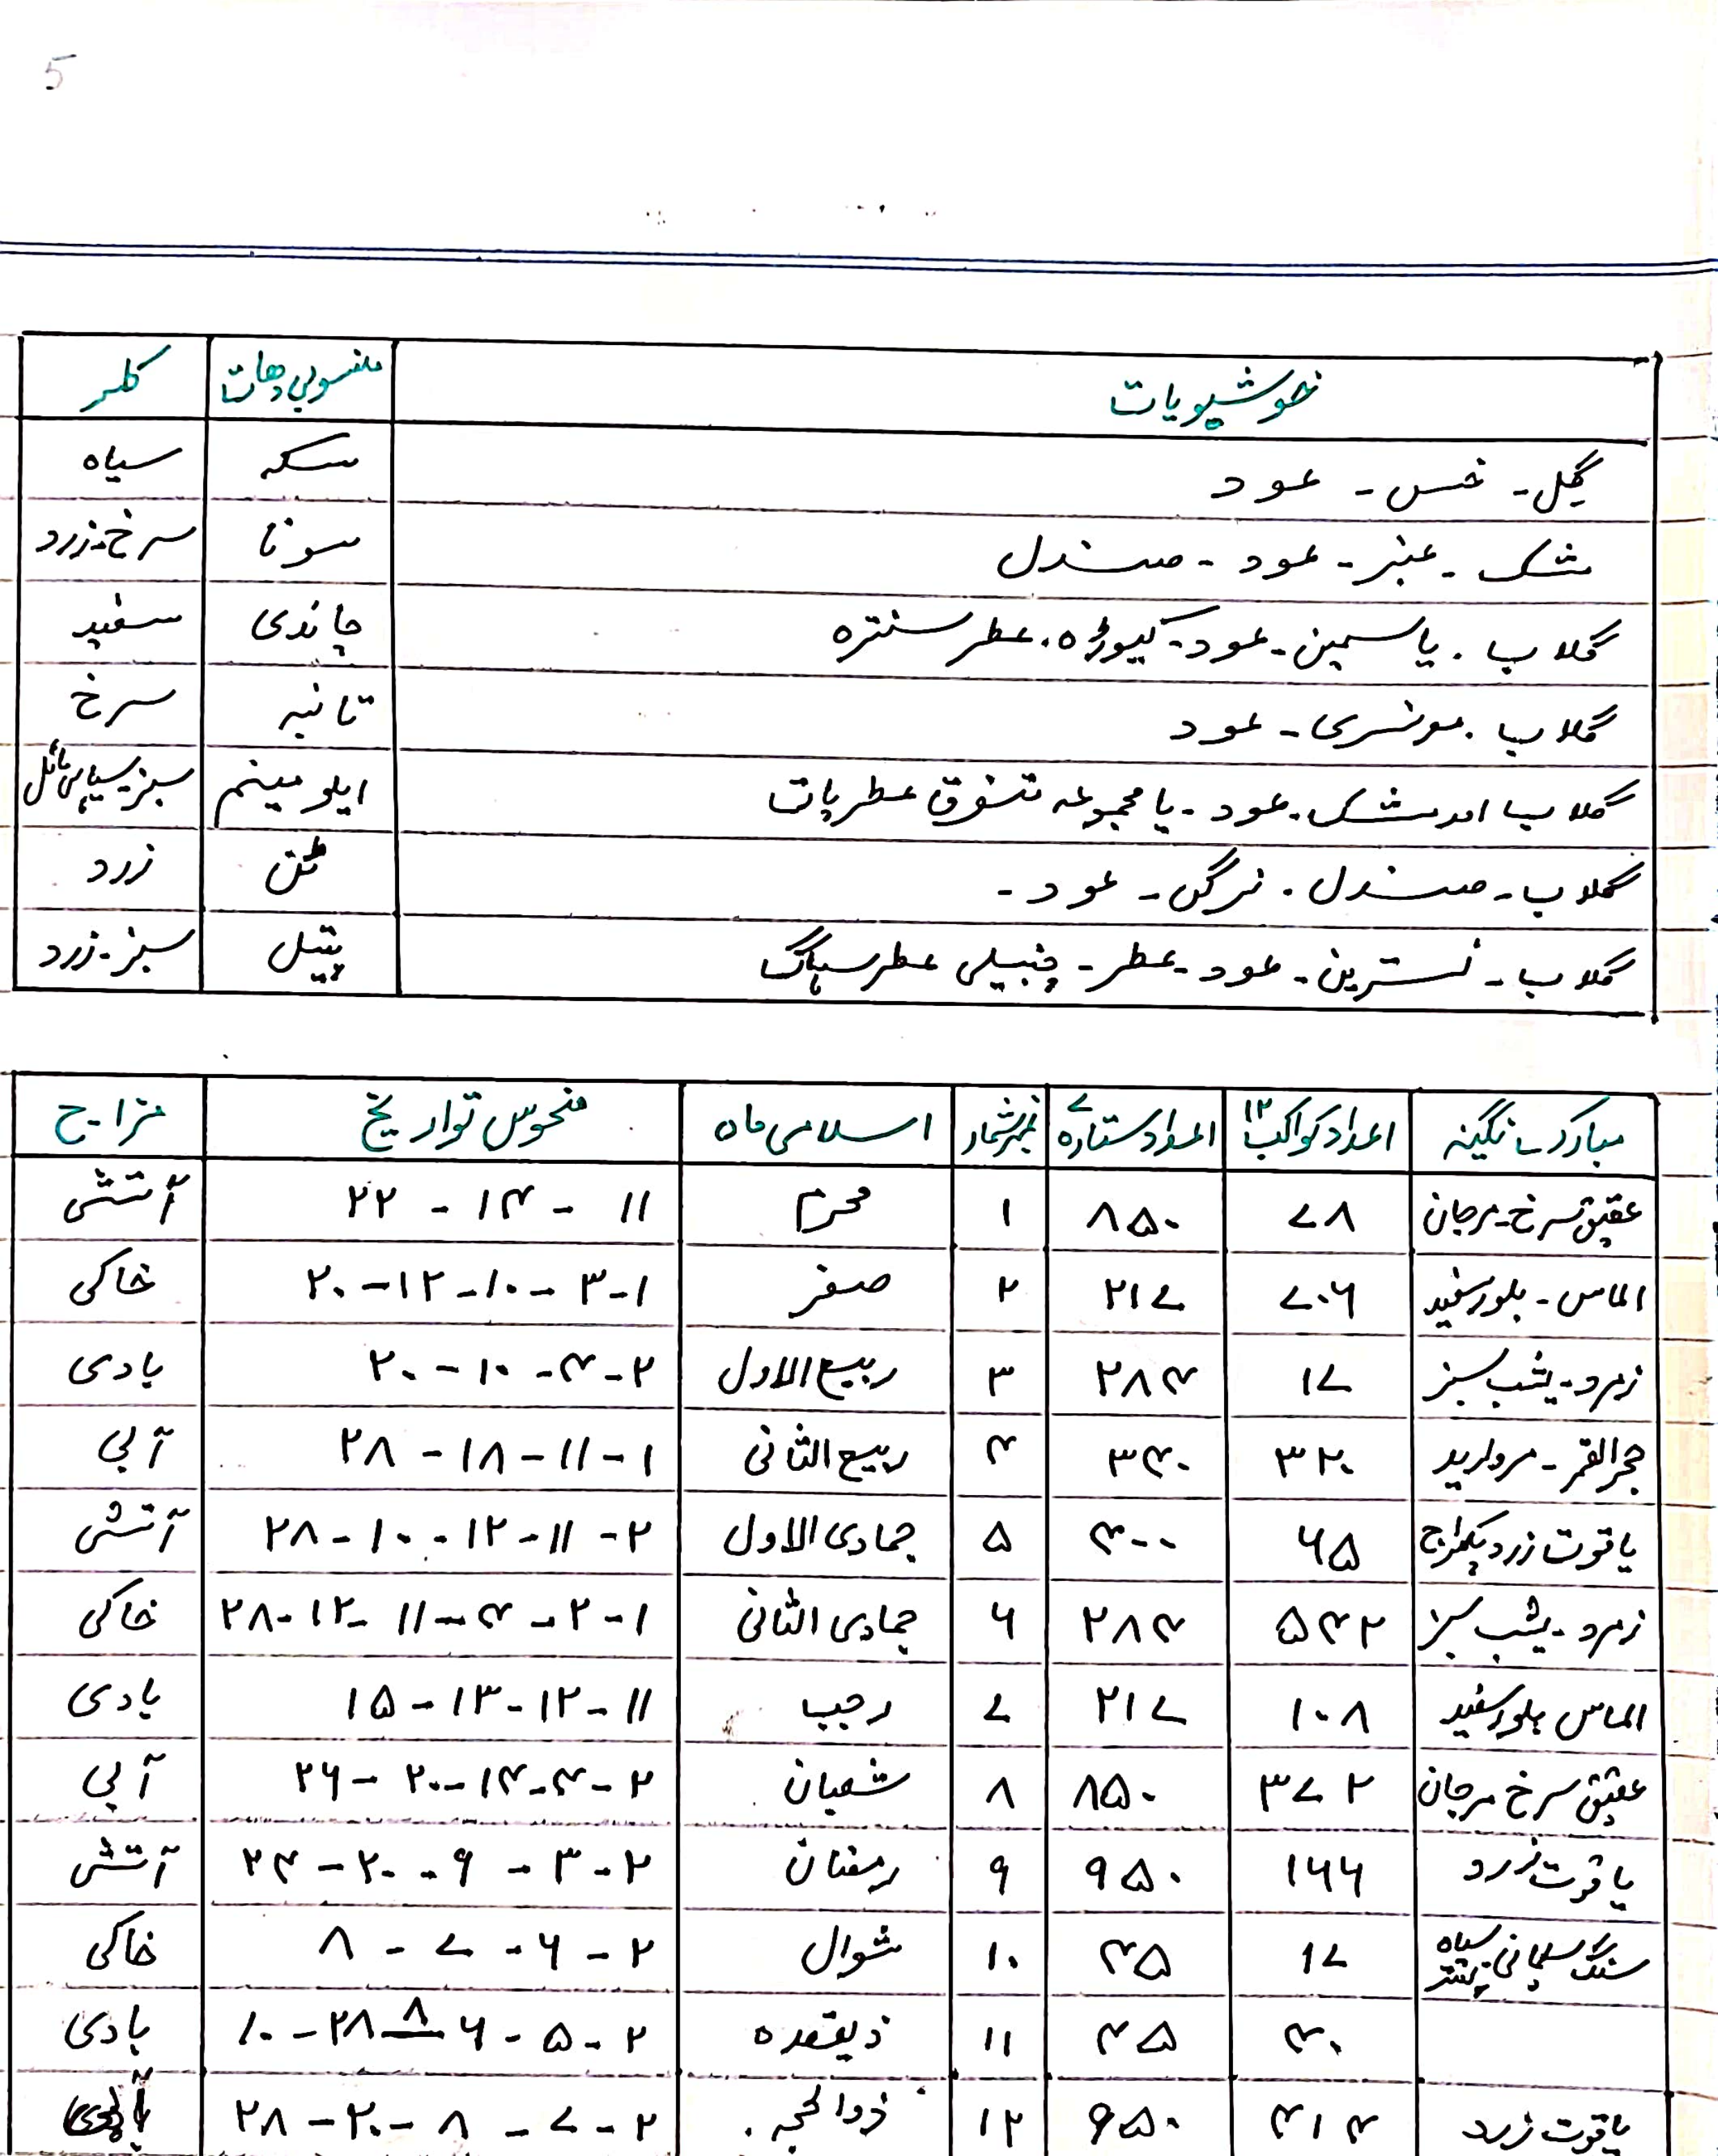 5
خوشبویات منسوبی دھات کلر
گِل - خس - عود سکہ سیاہ
مشک - عنبر - عود - صندل سونا سرخ-زرد
گلاب . یاسمین - عود - کیوڑہ . عطر سنترہ چاندی سفید
گلاب . مونسری - عود تانبہ سرخ
گلاب اور مشک - عود - یا مجموعہ متفرق عطریات ایلومینم سبز-سیاہی مائل
گلاب - صندل . نرگس - عود - زرد
گلاب - نسترین - عود - عطر - چنبیلی عطر سہاگ پیتل سبز-زرد
مبارک نگینہ اعداد کواکب ۱۲ اعداد ستارہ ۷ نمبرشمار اسلامی ماہ منحوس تواریخ مزاج
عقیق سرخ-مرجان ۷۸ ۸۵۰ ۱ محرم ۱۱ - ۱۴ - ۲۲ آتشی
الماس - بلور سفید ۷۰۶ ۲۱۷ ۲ صفر ۱-۳-۱۰-۱۲-۲۰ خاکی
زمرد - یشب سبز ۱۷ ۲۸۴ ۳ ربیع الاول ۲-۴-۱۰-۲۰ بادی
حجر القمر - مروارید ۳۲۰ ۳۴۰ ۴ ربیع الثانی ۱-۱۱-۱۸-۲۸ آبی
یاقوت زرد پکھراج ۶۵ ۴۰۰ ۵ جمادی الاول ۲-۱۱-۱۲-۱۰-۲۸ آتشی
زمرد - یشب سبز ۵۴۲ ۲۸۴ ۶ جمادی الثانی ۱-۲-۴-۱۱-۱۲-۲۸ خاکی
الماس بلور سفید ۱۰۸ ۲۱۷ ۷ رجب ۱۱-۱۲-۱۳-۱۵ بادی
عقیق سرخ مرجان ۳۷۲ ۸۵۰ ۸ شعبان ۲-۴-۱۴-۲۰-۲۶ آبی
یاقوت زرد ۱۶۶ ۹۵۰ ۹ رمضان ۲-۳-۹-۲۰-۲۴ آتشی
سنگ سلیمانی سیاہ ۱۷ ۴۵ ۱۰ شوال ۲-۶-۷-۸ خاکی
۴۰ ۴۵ ۱۱ ذیقعدہ ۲-۵-۶-۸-۲۸-۱۰ بادی
یاقوت زرد ۴۱۴ ۹۵۰ ۱۲ ذوالحجہ . ۲-۷-۸-۲۰-۲۸